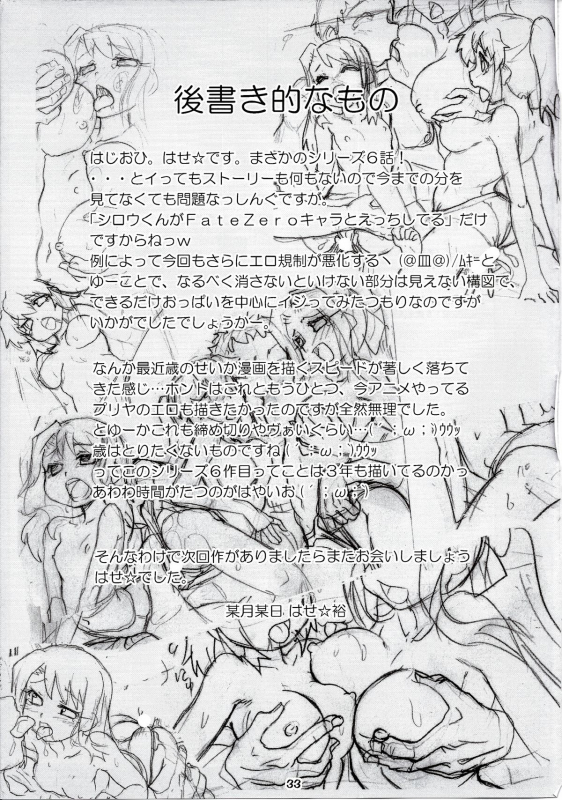 後書き的なもの
はじおひ。はせ☆です。まさかのシリーズ６話！
・・・とイってもストーリーも何もないので今までの分を
見てなくても問題なっしんぐですが。
「シロウくんがＦａｔｅＺｅｒｏキャラとえっちしてる」だけ
ですからねっｗ
例によって今回もさらにエロ規制が悪化するヽ(＠皿＠)/ﾑｷ=と
ゆーことで、なるべく消さないといけない部分は見えない構図で、
できるだけおっぱいを中心にイジってみたつもりなのですが
いかがでしたでしょうかー。
なんか最近歳のせいか漫画を描くスピードが著しく落ちて
きた感じ…ホントはこれともうひとつ、今アニメやってる
プリヤのエロも描きたかったのですが全然無理でした。
とゆーかこれも締め切りやヴぁいぐらい…(´；ω；`)ｳｳｯ
歳はとりたくないものですね(´；ω；`)ｳｳｯ
ってこのシリーズ６作目ってことは３年も描いてるのかっ
あわわ時間がたつのがはやいお(´；ω；`)
そんなわけで次回作がありましたらまたお会いしましょう
はせ☆でした。
某月某日 はせ☆裕
33